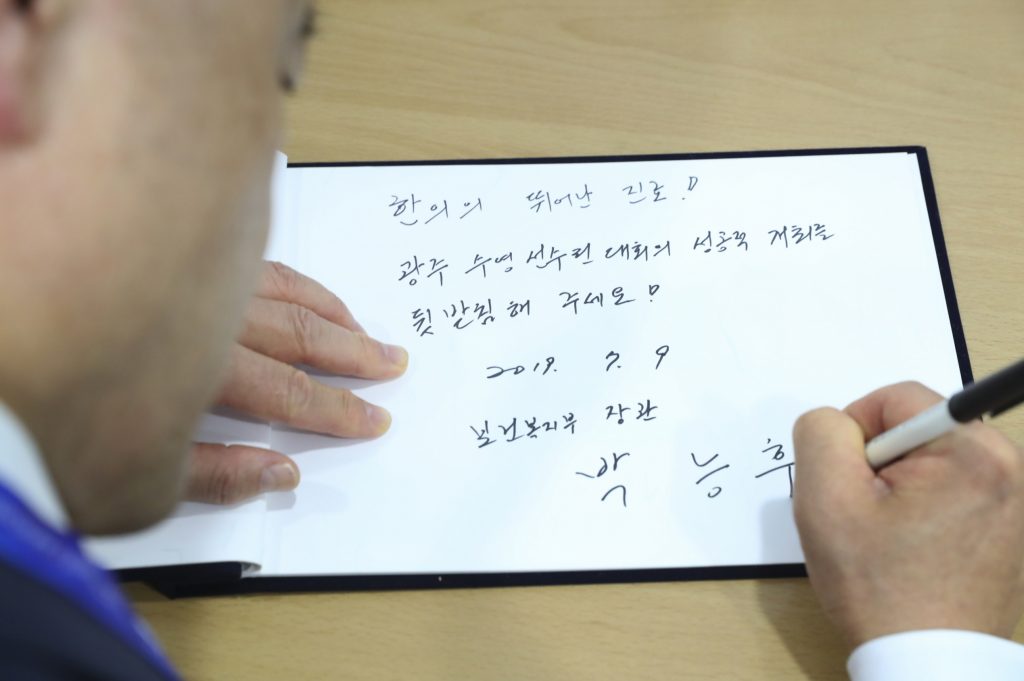 한의의 뛰어난 진료!
광주 수영 선수권 대회의 성공적 개최를
뒷받침 해 주세요!
2019. 7. 9
보건복지부 장관
박 능 후